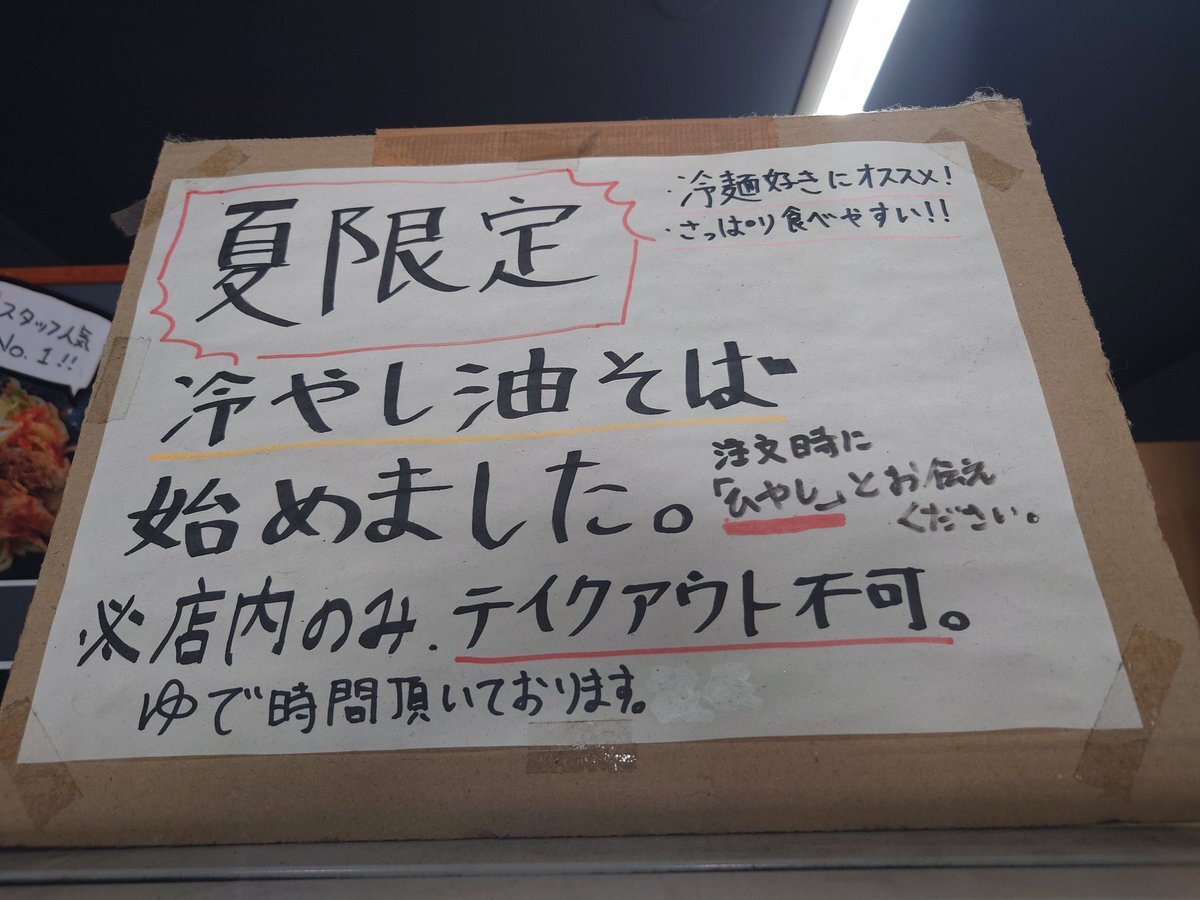 夏限定
・冷麺好きにオススメ!
・さっぱり食べやすい!!
冷やし油そば
始めました。
注文時に
「ひやし」とお伝え
ください。
※店内のみ.テイクアウト不可。
ゆで時間頂いております。
スタッフ人気
No.1!!